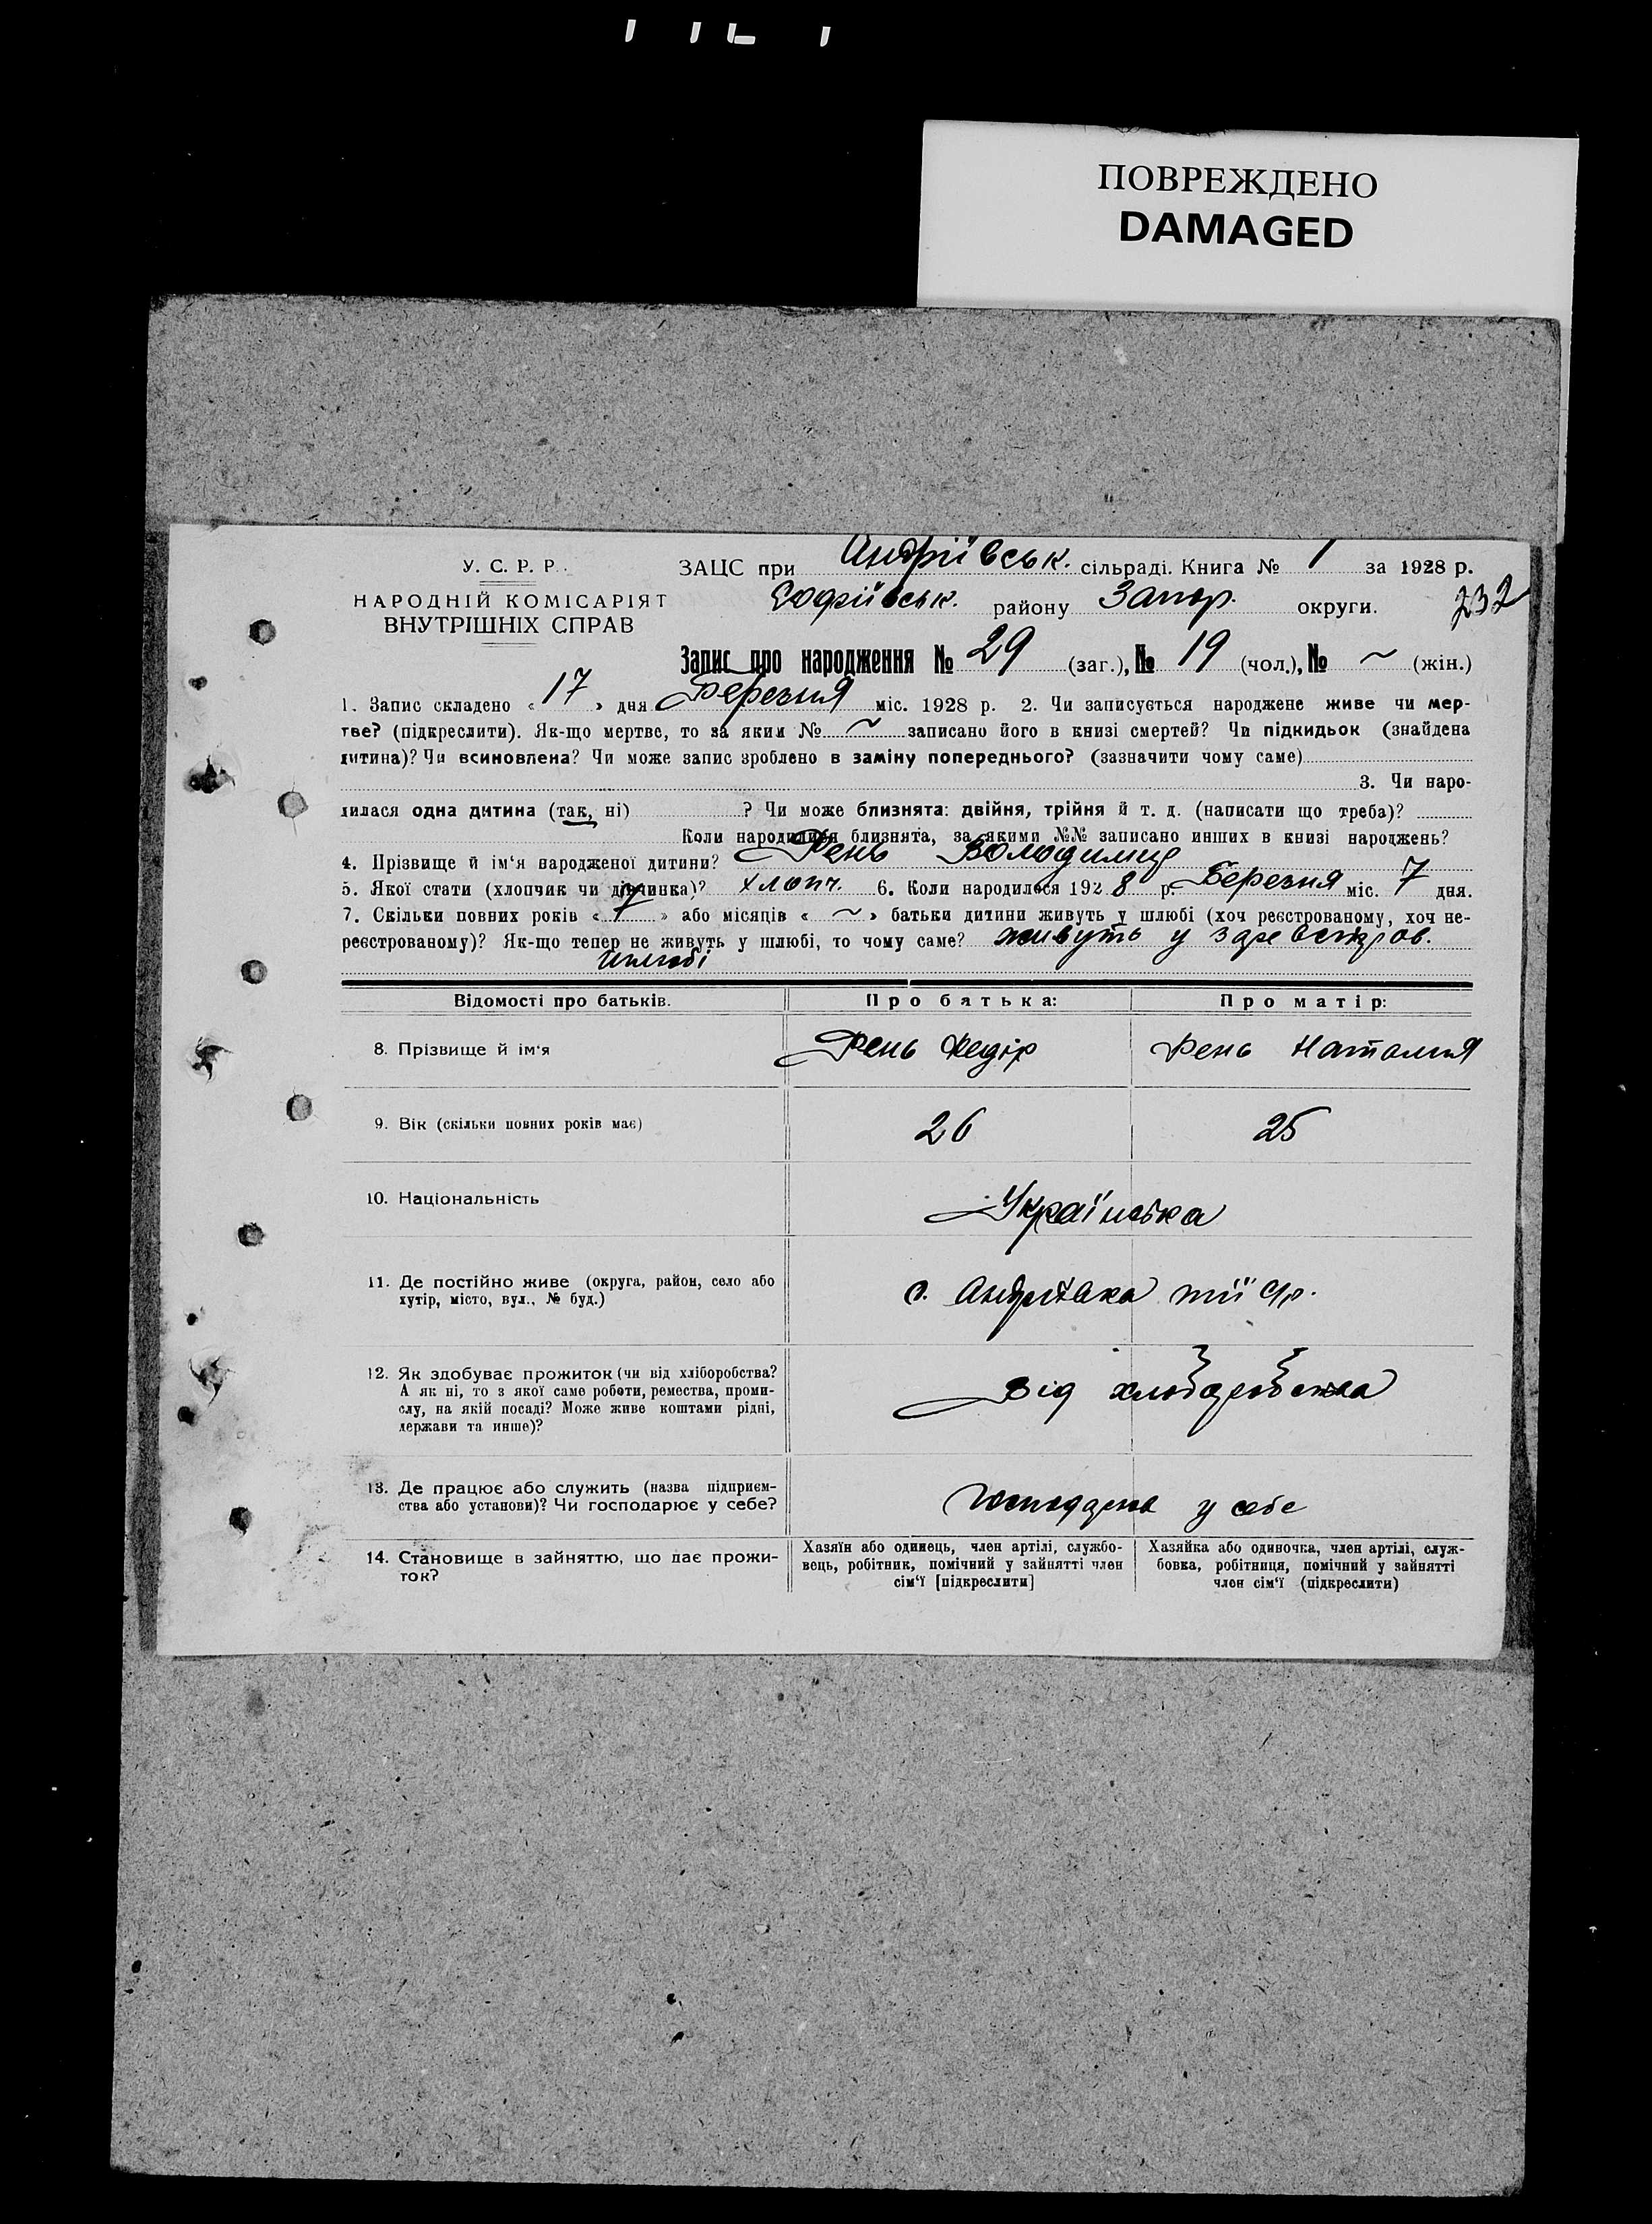 ПОВРЕЖДЕНО
DAMAGED
У. С. Р. Р.
НАРОДНІЙ КОМІСАРІЯТ
ВНУТРІШНІХ СПРАВ
ЗАЦС при Андріївськ. сільраді. Книга № 1 за 1928 р.
Софіївськ. району Запор. округи. 232
Запис про народження № 29 (заг.), № 19 (чол.), № ~ (жін.)
1. Запис складено « 17 » дня Березня міс. 1928 р. 2. Чи записується народжене живе чи мер-
тве? (підкреслити). Як-що мертве, то за яким № ~ записано його в книзі смертей? Чи підкидьок (знайдена
дитина)? Чи всиновлена? Чи може запис зроблено в заміну попереднього? (зазначити чому саме)
3. Чи наро-
дилася одна дитина (так, ні) ? Чи може близнята: двійня, трійня й т. д. (написати що треба)?
Коли народилися близнята, за якими №№ записано инших в книзі народжень?
4. Прізвище й ім‘я народженої дитини? Рень Володимир
5. Якої стати (хлопчик чи дівчинка)? хлопч. 6. Коли народилася 1928 р. Березня міс. 7 дня.
7. Скільки повних років « 7 » або місяців « ~ » батьки дитини живуть у шлюбі (хоч реєстрованому, хоч не-
реєстрованому)? Як-що тепер не живуть у шлюбі, то чому саме? живуть у
шлюбі
Відомості про батьків. Про батька: Про матір:
8. Прізвище й ім‘я Рень Федір Рень Наталия
9. Вік (скільки повних років має) 26 25
10. Національність Українська
11. Де постійно живе (округа, район, село або
хутір, місто, вул., № буд.) с. Андріївка
12. Як здобуває прожиток (чи від хліборобства?
А як ні, то з якої саме роботи, ремества, проми-
слу, на якій посаді? Може живе коштами рідні,
держави та инше)? Від
13. Де працює або служить (назва підприєм-
ства або установи)? Чи господарює у себе? у себе
14. Становище в зайняттю, що дає прожи-
ток?
Хазяїн або одинець, член артілі, службо-
вець, робітник, помічний у зайнятті член
сім‘ї [підкреслити]
Хазяйка або одиночка, член артілі, служ-
бовка, робітниця, помічний у зайнятті
член сім‘ї (підкреслити)